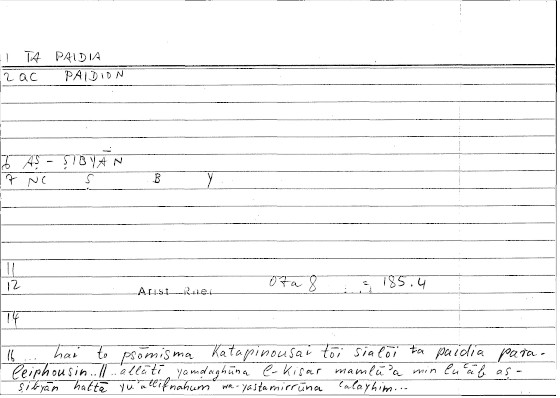 1 TA PAIDIA
2 ac PAIDION
6 AṢ-ṢIBYĀN
7 NC Ṣ B Y
11
12 Arist Rhet 07a8 185.4
14
16 ... hai to psōmisma katapinousai tōi sialōi ta paidia para-
leiphousin..//..allātī yamḍaghūna l-kisar mamlū'a min lu'āb aṣ-
ṣibyān ḥattā yu'allifnahum wa-yastamirrūna 'alayhim...